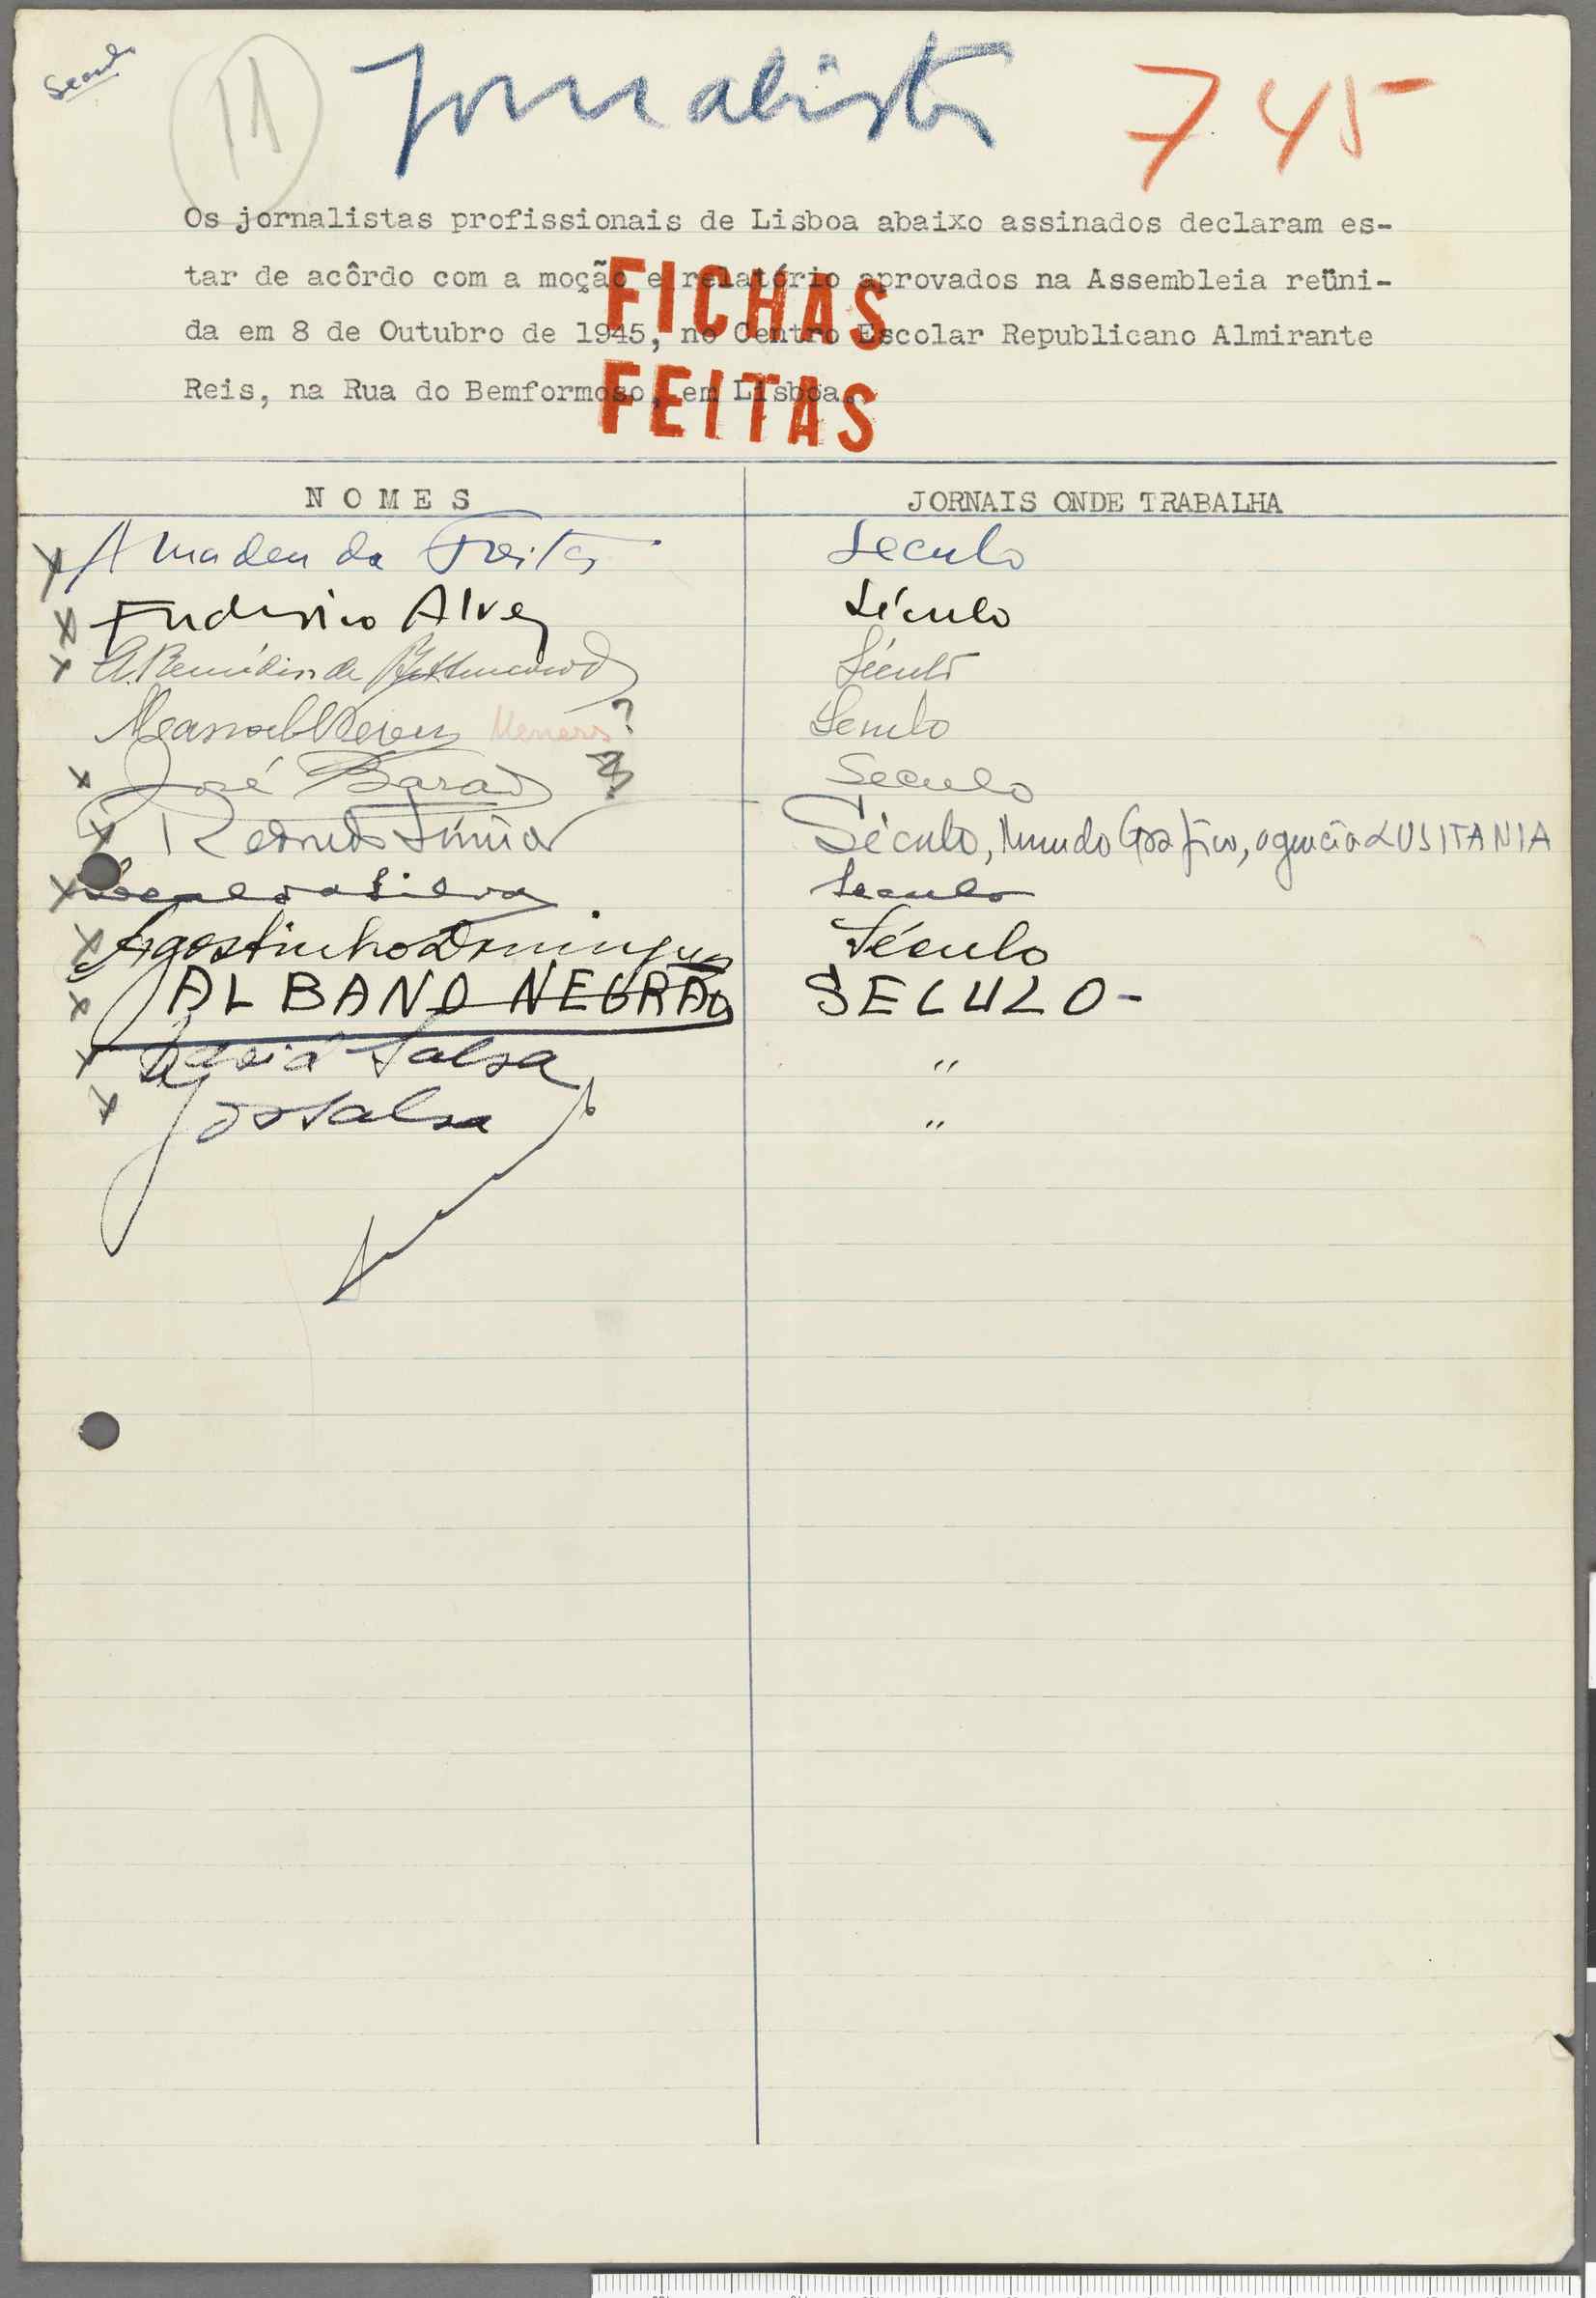 Seculo
11 Jornalistas 745
Os jornalistas profissionais de Lisboa abaixo assinados declaram es-
tar de acôrdo com a moção e relatório aprovados na Assembleia reüni-
da em 8 de Outubro de 1945, no Centro Escolar Republicano Almirante
Reis, na Rua do Bemformoso, em Lisboa.
FICHAS
FEITAS
NOMES JORNAIS ONDE TRABALHA
x Amadeu de Freitas Seculo
x Frederico Alves Século
x A. Bettencourt Século
Manuel ? Seculo
x José Barão Seculo
x Redondo Júnior Século, Mundo Gráfico, agencia LUSITANIA
x Silva Seculo
x Agostinho Domingues Século
x ALBANO NEGRÃO SECULO-
x Salsa "
x Salsa "